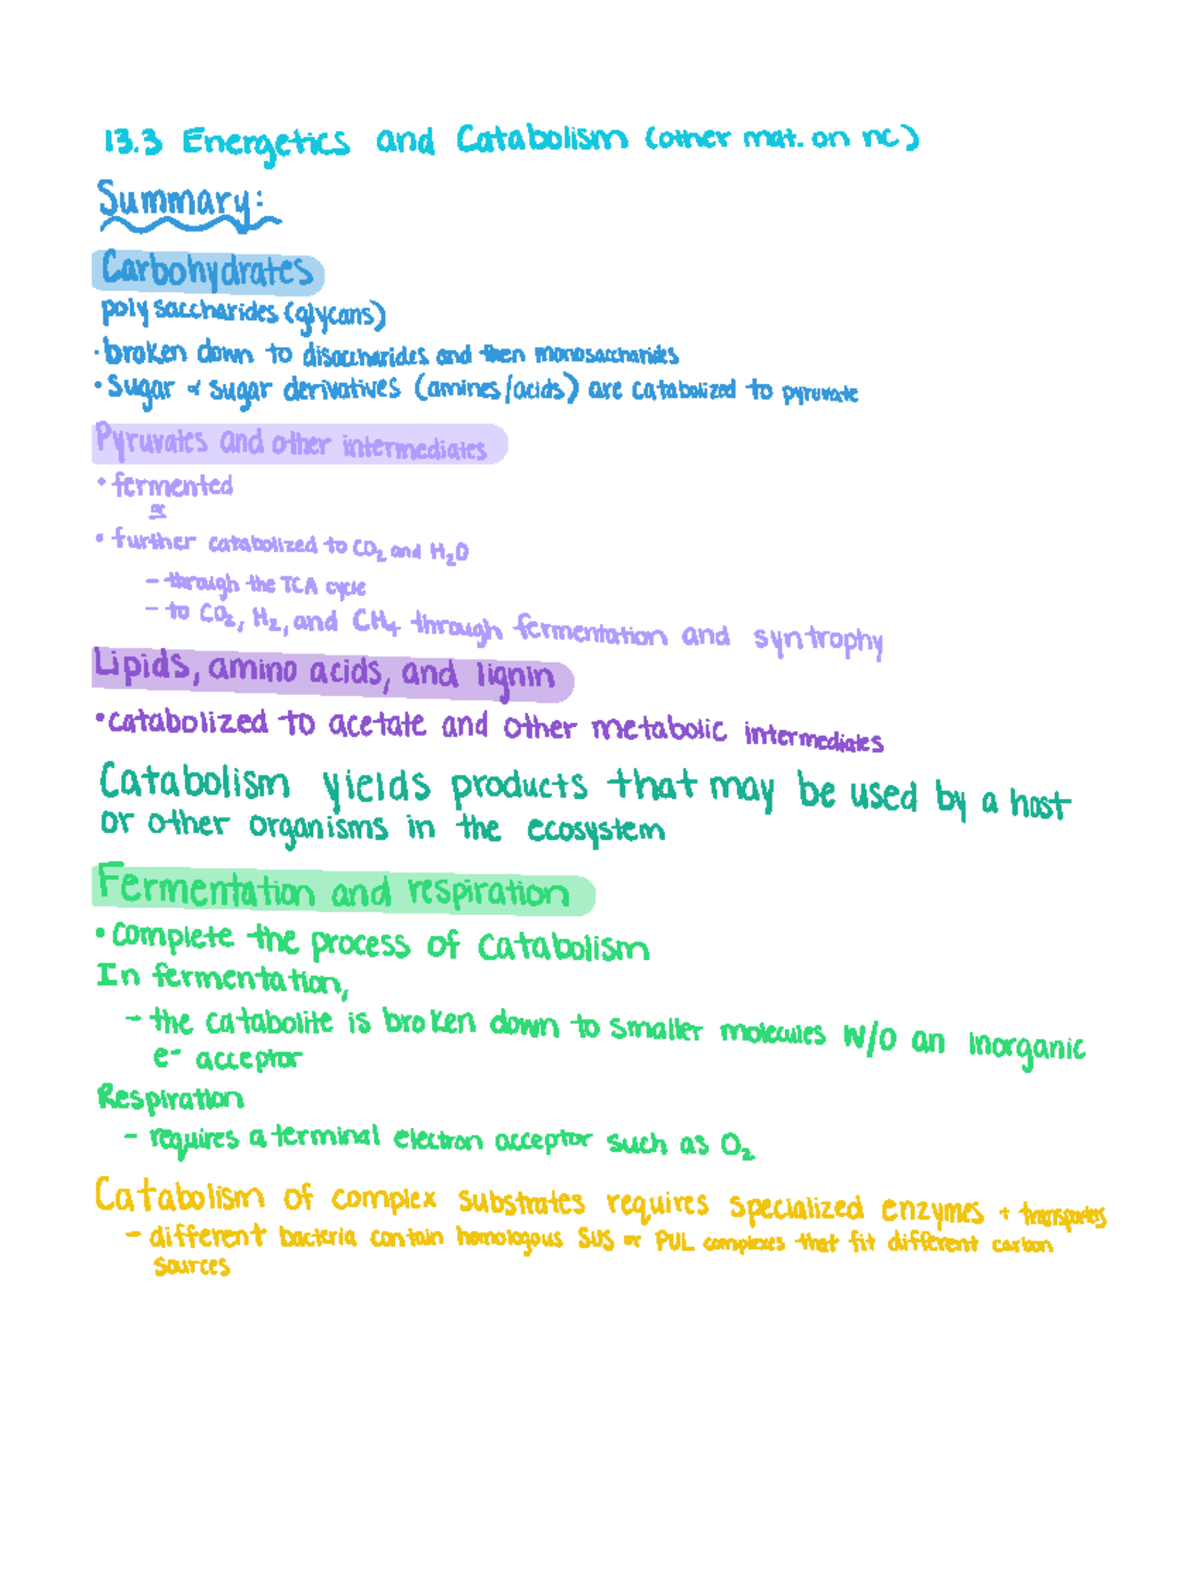 13.3 Energetics and Catabolism (other mat. on nc)
Summary:
Carbohydrates
polysaccharides (glycans)
• broken down to disaccharides and then monosaccharides
• Sugar & sugar derivatives (amines/acids) are catabolized to pyruvate
Pyruvates and other intermediates
• fermented
or
• further catabolized to CO₂ and H₂O
- through the TCA cycle
- to CO₂, H₂, and CH₄ through fermentation and syntrophy
Lipids, amino acids, and lignin
• catabolized to acetate and other metabolic intermediates
Catabolism yields products that may be used by a host
or other organisms in the ecosystem
Fermentation and respiration
• complete the process of catabolism
In fermentation,
- the catabolite is broken down to smaller molecules w/o an inorganic
e⁻ acceptor
Respiration
- requires a terminal electron acceptor such as O₂
Catabolism of complex substrates requires specialized enzymes +
- different bacteria contain homologous SUS or PUL complexes that fit different carbon
sources